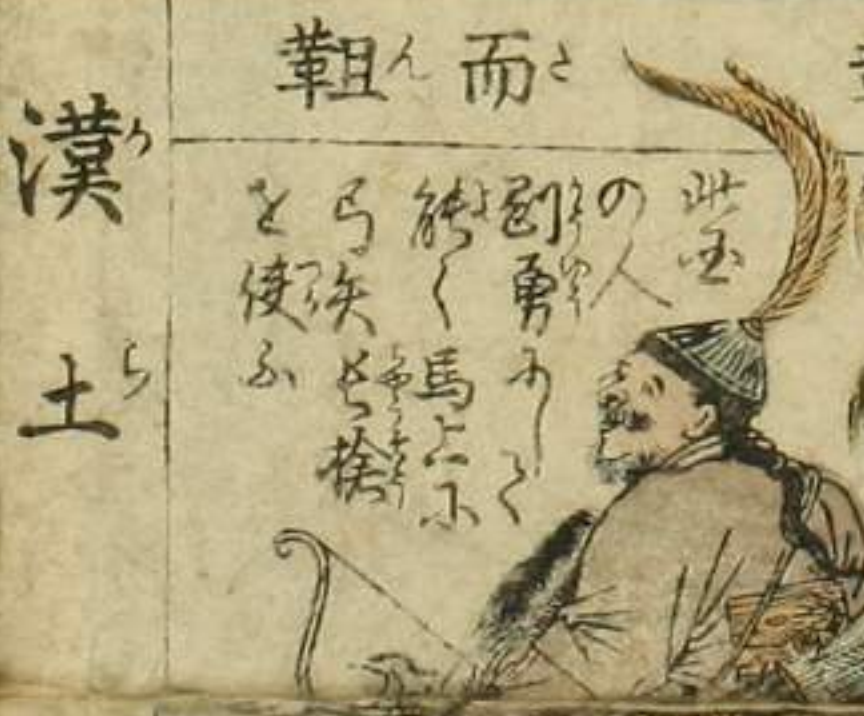 而靼
此国
の人
剛勇にして
能く馬上に
弓矢長槍
を使ふ
漢土